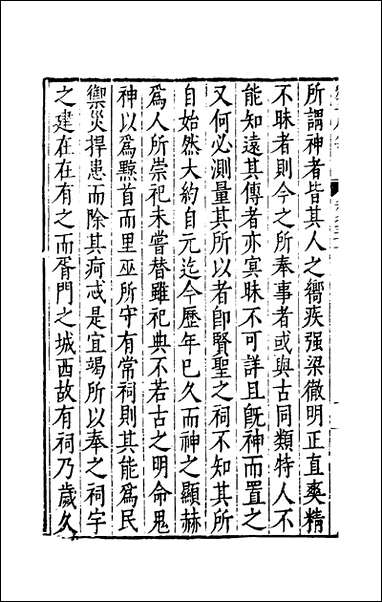 所謂神者皆其人之嚮疾强梁徹明正直奭精
不昧者則今之所奉事者或與古同類特人不
能知遠其傳者亦寘昧不可詳且旣神而置之
又何必測量其所以者卽賢聖之祠不知其所
自始然大約自元迄今歷年巳久而神之顯赫
爲人所崇祀未嘗替雖祀典不若古之明命鬼
神以爲黔首而里巫所守有常祠則其能爲民
禦災捍患而除其疴忒是宜竭所以奉之祠宇
之建在在有之而胥門之城西故有祠乃歲久